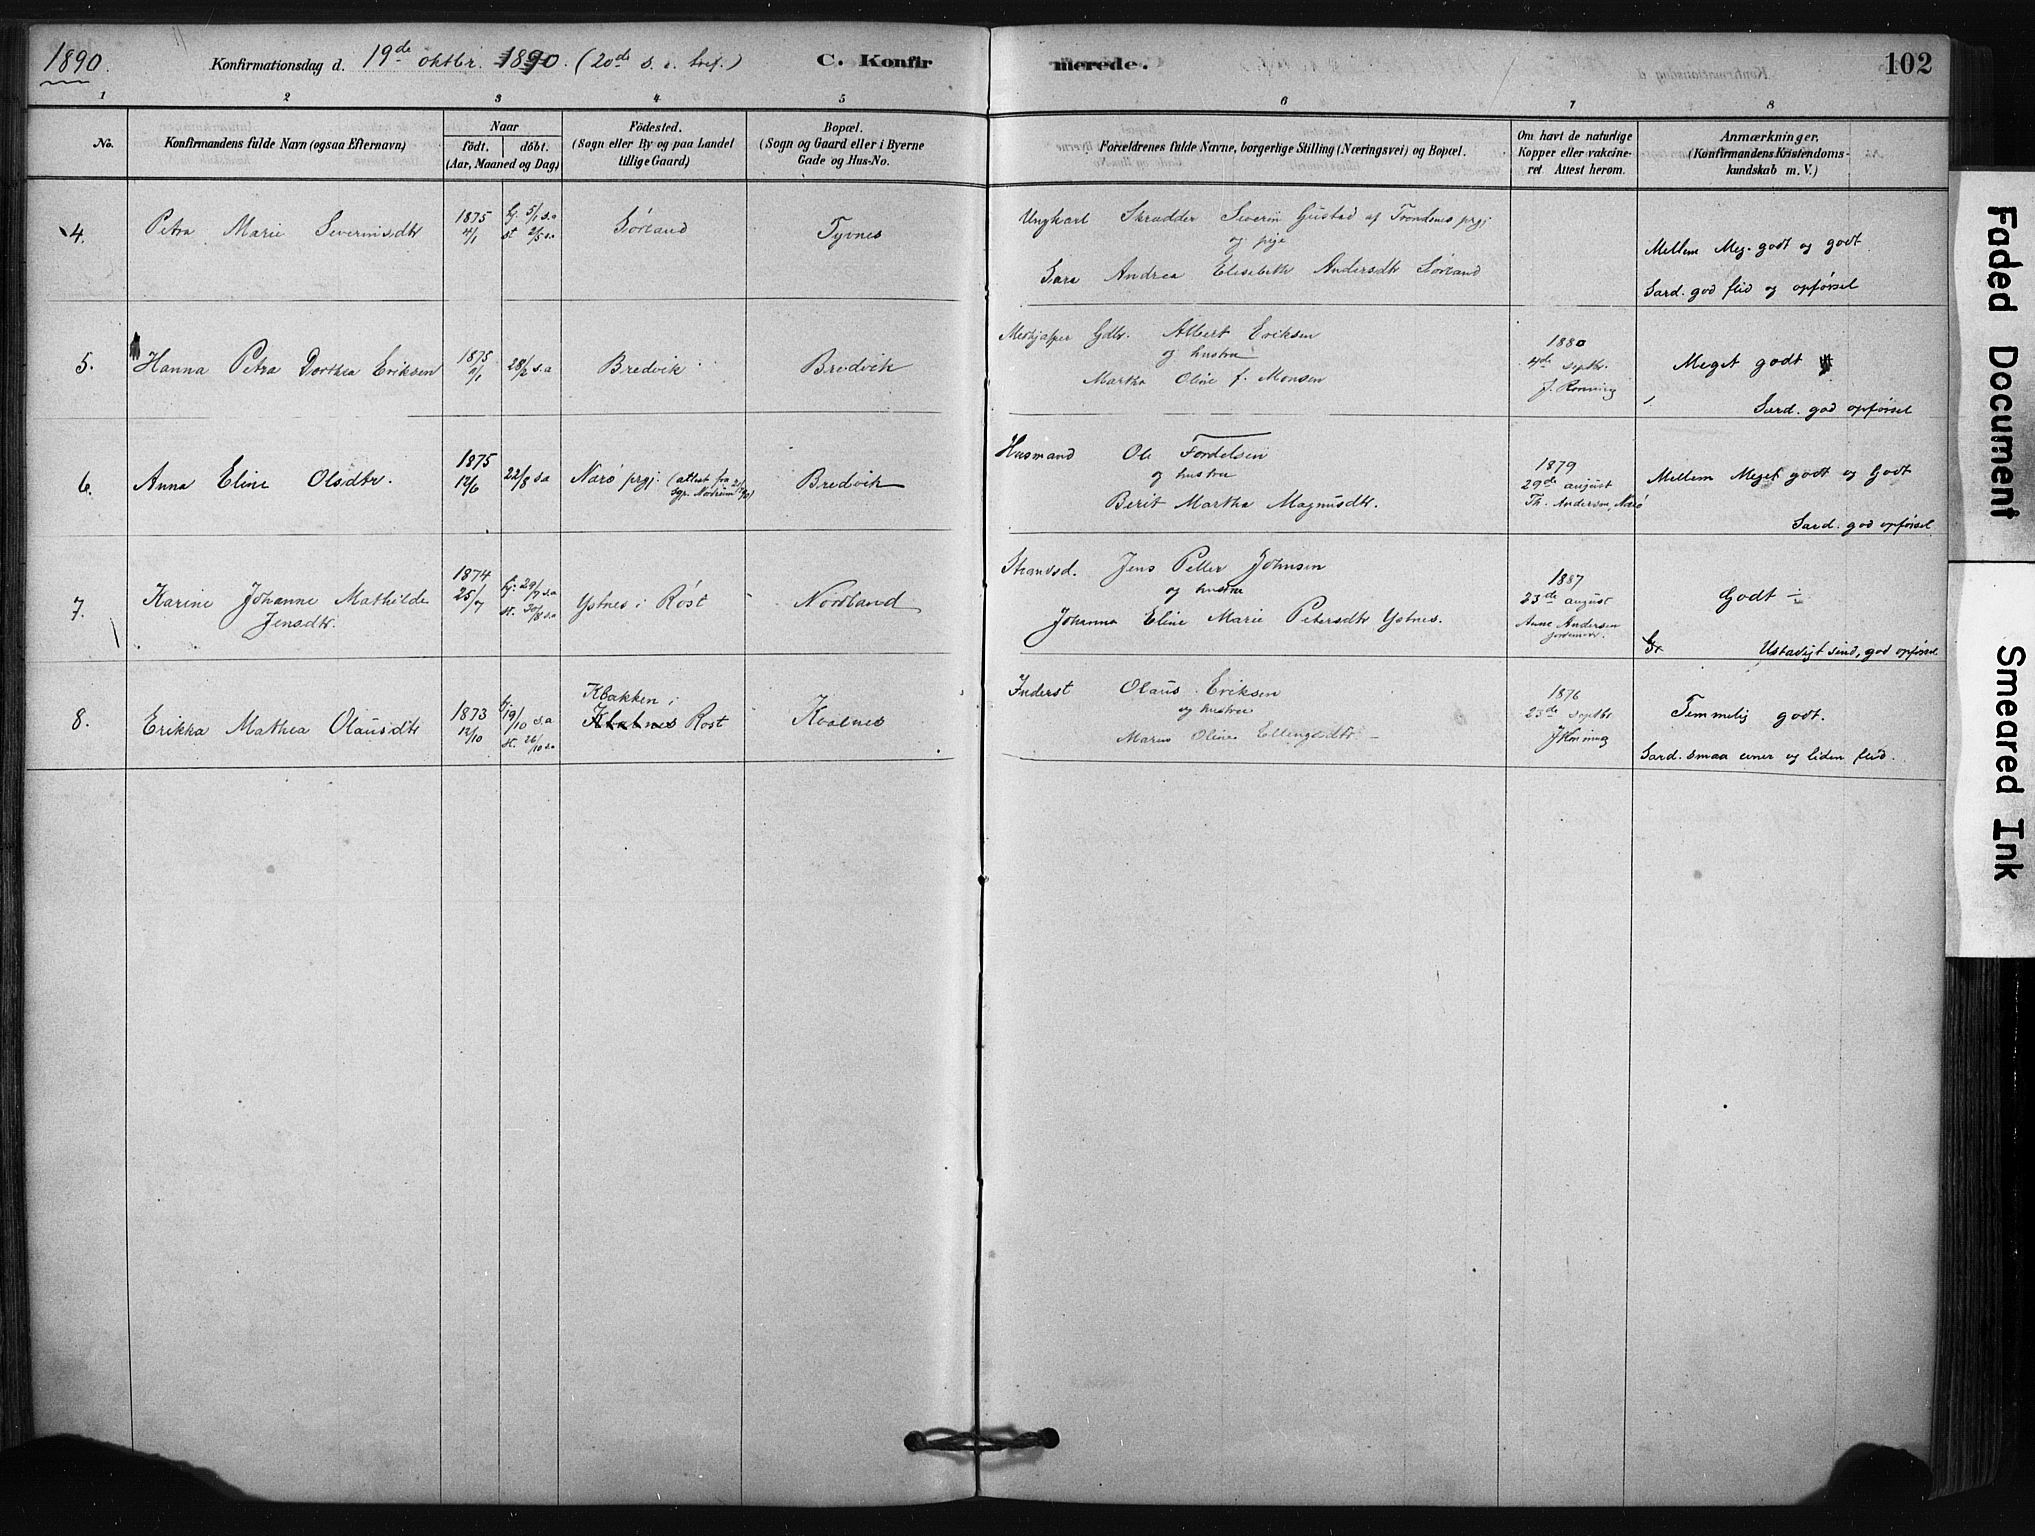 1890.
Konfirmationsdag d. 19de oktbr. 1890. (20de s. e. tref.)
C. Konfir
merede.
102
1 2 3 4 5 6 7 8
No.
Konfirmandens fulde Navn (ogsaa Efternavn)
Naar
födt. döbt.
(Aar, Maaned og Dag)
Födested.
(Sogn eller By og paa Landet
tillige Gaard)
Bopæl.
(Sogn og Gaard eller i Byerne
Gade og Hus-No.
Forældrenes fulde Navne, borgerlige Stilling (Næringsvei) og Bopæl.
Om havt de naturlige
Kopper eller vakcine-
ret Attest herom.
Anmærkninger.
(Konfirmandens Kristendoms-
kundskab m. V.)
4.
Petra Marie Severinsdtr
1875
4/1
hj. 5/1 s.a
st 2/5 s.a
Sörland
Tyvnes
Ungkarl Skrædder Severin Gustad af Trondenes prgj
og pige
Sara Andrea Elisebeth Andersdtr Sörland
Mellem Meg. godt og godt
Særd. god flid og opförsel
5.
Hanna Petra Dorthea Eriksen
1875
9/1
28/2 s.a
Bredvik
Bredvik
Medhjælper Gdbr. Albert Eriksen
og hustru
Martha Oline f. Monsen
1880
4de septbr.
J. Rönning
Meget godt
Særd. god opförsel
6.
Anna Eline Olsdtr.
1875
12/6
22/8 s.a
Nærö prgj. (attest fra
sgp. Nordrum
Bredvik
Husmand Ole Fordelsen
og hustru
Berit Martha Magnusdtr.
1879
29de august
Th. Andersen, Nærö
Mellem Meget godt og Godt
Særd. god opförsel
7.
Karine Johanne Mathilde
Jensdtr.
1874
25/7
hj. 29/7 s.a
st. 30/8 s.a
Ystnes i Röst
Nordland
Strandsd. Jens Petter Johnsen
og hustru
Johanna Eline Marie Petersdtr Ystnes.
1887
23de august
Anne Andersen
jordemoder.
Godt ÷
Ustadigt sind, god opförsel
8.
Erikka Mathea Olausdtr
1873
12/10
hj 19/10 s.a
st. 26/10 s.a
Kbakken i
Röst
Kvalnes
Inderst Olaus Eriksen
og hustru
Maren Oline Ellingsdtr. -
1876
23de septbr
J Rönning
Temmelig godt.
Særd. smaa evner og liden flid.
Faded Document
Smeared Ink